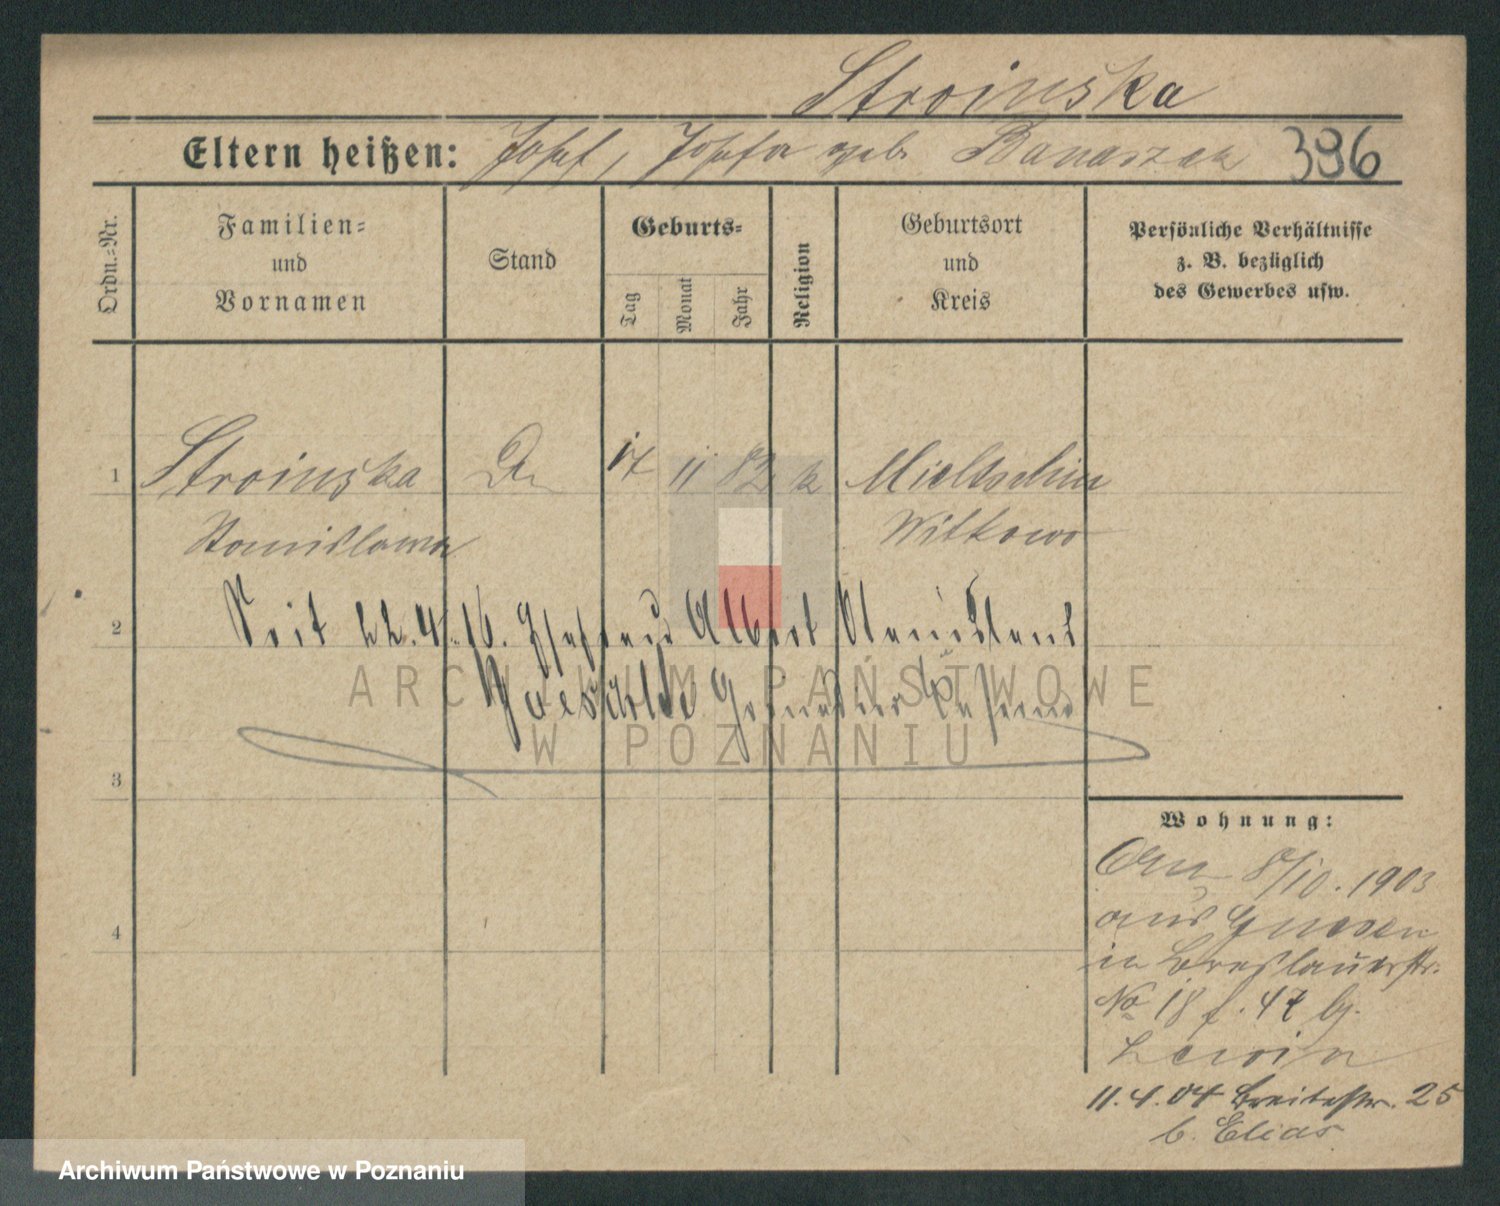 Stroinska
Eltern heißen: Josef, Josefa geb. Banaszak 396
Ordn.-Nr.
Familien-
und
Vornamen
Stand
Geburts-
Tag
Monat
Jahr
Religion
Geburtsort
und
Kreis
Persönliche Verhältnisse
z. B. bezüglich
des Gewerbes usw.
1 Stroinska 17 11 82 k Mieltschin
Stanislawa Witkowo
2 Seit 22.4.16. Ehefrau Albert Stanislaus
Grenadier
3
4
Wohnung:
8/10. 1903
aus Gnesen
in Breslauerstr.
No 18 f. 47 bj.
Lewin
11.4.04 Breitestr. 25
b. Elias
ARCHIWUM PAŃSTWOWE
W POZNANIU
Archiwum Państwowe w Poznaniu